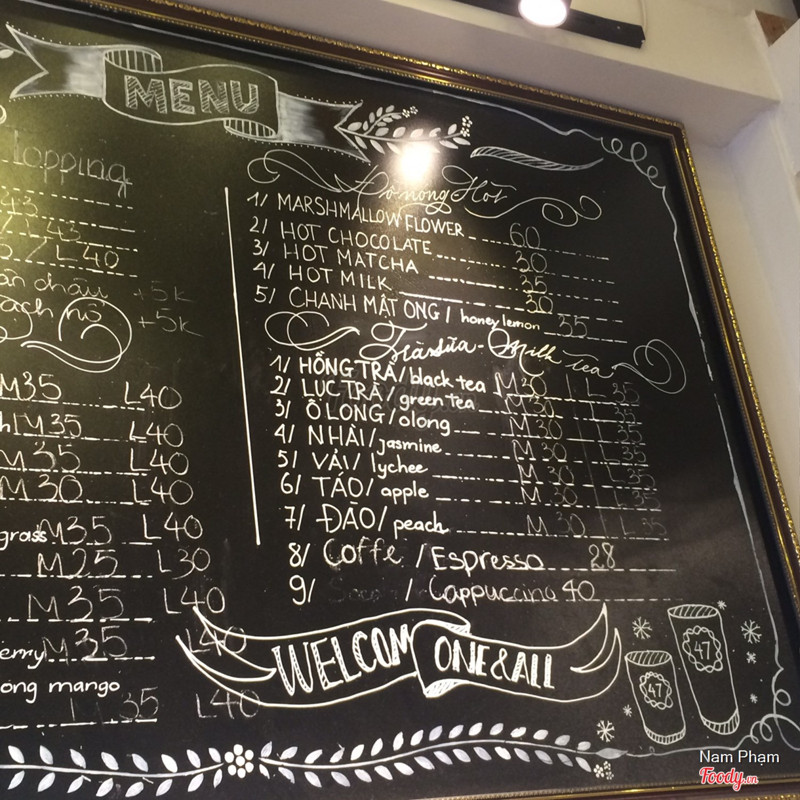 MENU
Topping
43
43
L40
ân châu +5k
ạch nổ +5k
M35 L40
M35 L40
M35 L40
M30 L40
grass M35 L40
M25 L30
M35 L40
erry M35 L40
ong mango
35 L40
Đồ nóng Hot
1/ MARSHMALLOW FLOWER 60
2/ HOT CHOCOLATE 30
3/ HOT MATCHA 35
4/ HOT MILK 30
5/ CHANH MẬT ONG / honey lemon 35
Trà sữa - Milk tea
1/ HỒNG TRÀ / black tea M30 L 35
2/ LỤC TRÀ / green tea M30 L 35
3/ Ô LONG / olong M 30 L 35
4/ NHÀI / jasmine M 30 L 35
5/ VẢI / lychee M 30 L 35
6/ TÁO / apple M 30 L 35
7/ ĐÀO / peach M 30 L 35
8/ Coffe / Espresso 28
9/ / Cappuccino 40
WELCOM ONE & ALL
47
47
Nam Phạm
Foody.vn